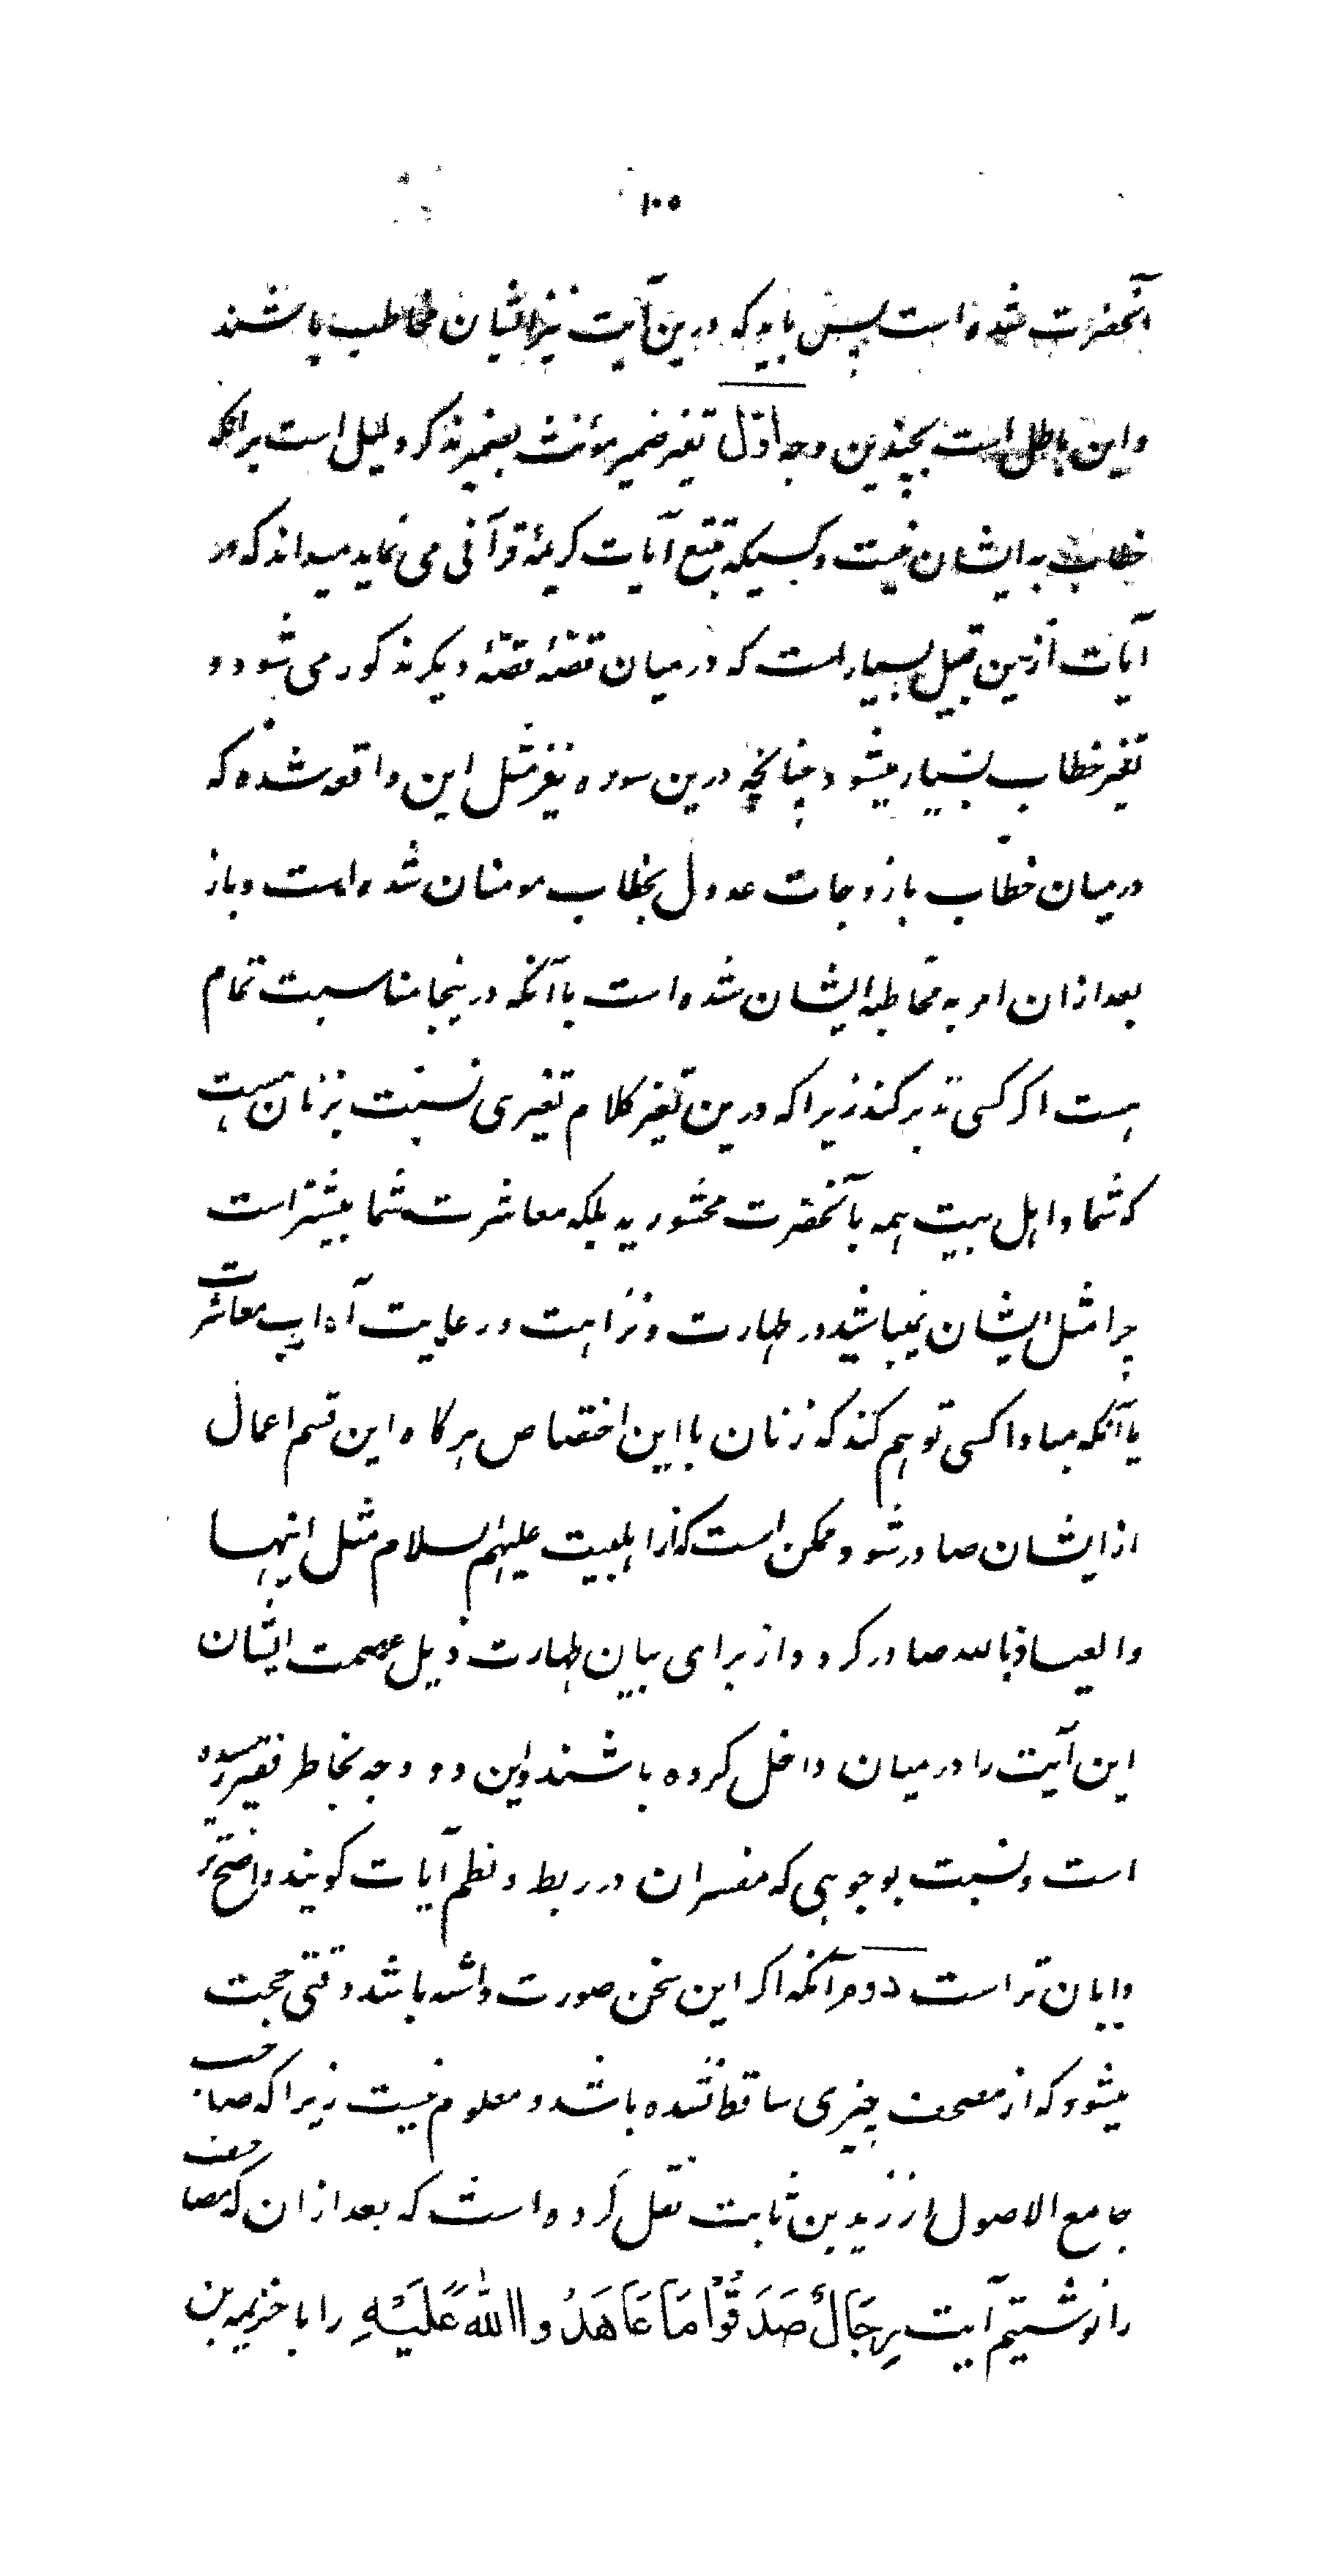 ۱۰۰
آنحضرت شده است پس باید که درین آیت نیز ایشان مخاطب باشند
و این باطل است بچندین وجه اوّل تغیر ضمیر مؤنث بضمیر مذکر دلیل است برانکه
خطاب به ایشان نیست و کسیکه تتبع آیات کریمهٔ قرآنی می نماید میداند که در
آیات ازین قبیل بسیار است که در میان قصّهٔ قصّهٔ دیکر مذکور می شود و
تغیر خطاب بسیار میشود چنانچه درین سوره نیز مثل این واقع شده که
درمیان خطاب بازوجات عدول بخطاب مومنان شده است و باز
بعد ازان امر به مخاطبهٔ ایشان شده است با آنکه در ینجا مناسبت تمام
هست اکر کسی تدبر کند زیرا که درین تغیر کلام تغیری نسبت بزنان هست
که شما و اهل بیت همه با آنحضرت محشورید بلکه معاشرت شما بیشتر است
چرا مثل ایشان نمیباشید در طهارت و نزاهت و رعایت آداب معاشرت
یا آنکه مبادا کسی توهم کند که زنان با این اختصاص هرکاه این قسم اعمال
از ایشان صادر شود ممکن است که از اهلبیت علیهم السلام مثل اینها
والعیاذ بالله صادر کردد از برای بیان طهارت ذیل عصمت ایشان
این آیت را درمیان داخل کرده باشند و این دو وجه بخاطر فقیر رسیده
است و نسبت بوجوهی که مفسران در ربط و نظم آیات کویند واضح تر
و ابان تر است دوم آنکه اکر این سخن صورت داشته باشد وقتی حجت
میشود که از مصحف چیزی ساقط نشده باشد و معلوم نیست زیرا که صاحب
جامع الاصول از زید بن ثابت نقل کرده است که بعد ازان که مصاحف
را نوشتیم آیت رِجَالٌ صَدَقُوْا مَا عَاهَدُوا اللهَ عَلَیْهِ را با خزیمه بن